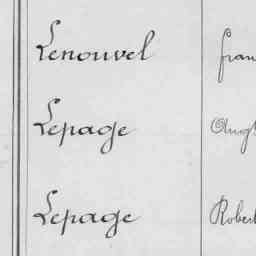 Lenouvel fran
Lepage Aug
Lepage Robert